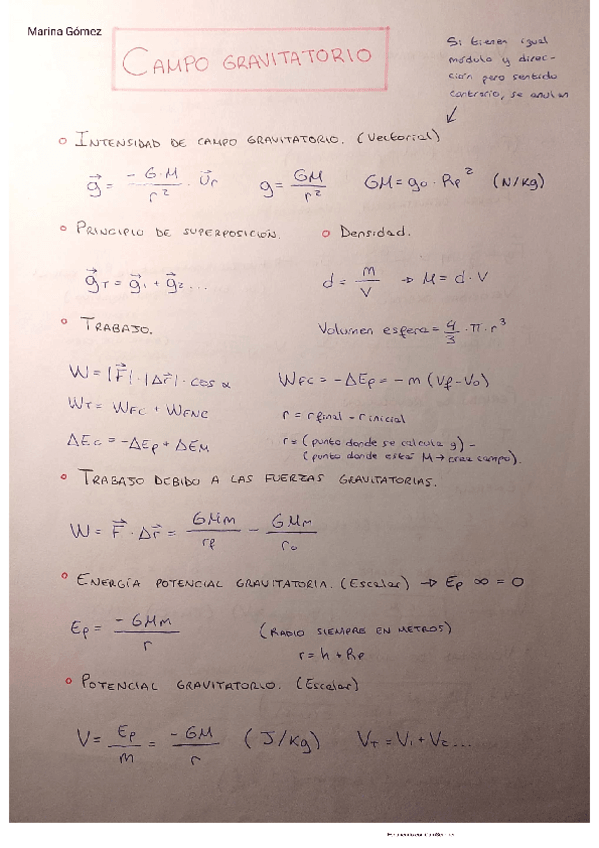 Marina Gómez
CAMPO GRAVITATORIO
Si tienen igual
módulo y direc-
ción pero sentido
contrario, se anulan
INTENSIDAD DE CAMPO GRAVITATORIO. (Vectorial)
g⃗ = -G·M/r² · u⃗r   g = GM/r²   GM = g₀ · Rp² (N/kg)
PRINCIPIO DE SUPERPOSICIÓN.   Densidad.
g⃗T = g⃗₁ + g⃗₂ ...   d = m/V → M = d·V
TRABAJO.   Volumen esfera = 4/3 · π · r³
W = |F⃗| · |Δr⃗| · cos α   WFC = -ΔEp = -m (Vf - V₀)
WT = WFC + WFNC   r = rfinal - rinicial
ΔEc = -ΔEp + ΔEM   r = (punto donde se calcula g) -
(punto donde está M → crea campo).
TRABAJO DEBIDO A LAS FUERZAS GRAVITATORIAS.
W = F⃗ · Δr⃗ = GMm/rf - GMm/r₀
ENERGÍA POTENCIAL GRAVITATORIA. (Escalar) → Ep ∞ = 0
Ep = -GMm/r   (RADIO SIEMPRE EN METROS)
r = h + Rp
POTENCIAL GRAVITATORIO. (Escalar)
V = Ep/m = -GM/r (J/kg)   VT = V₁ + V₂ ...